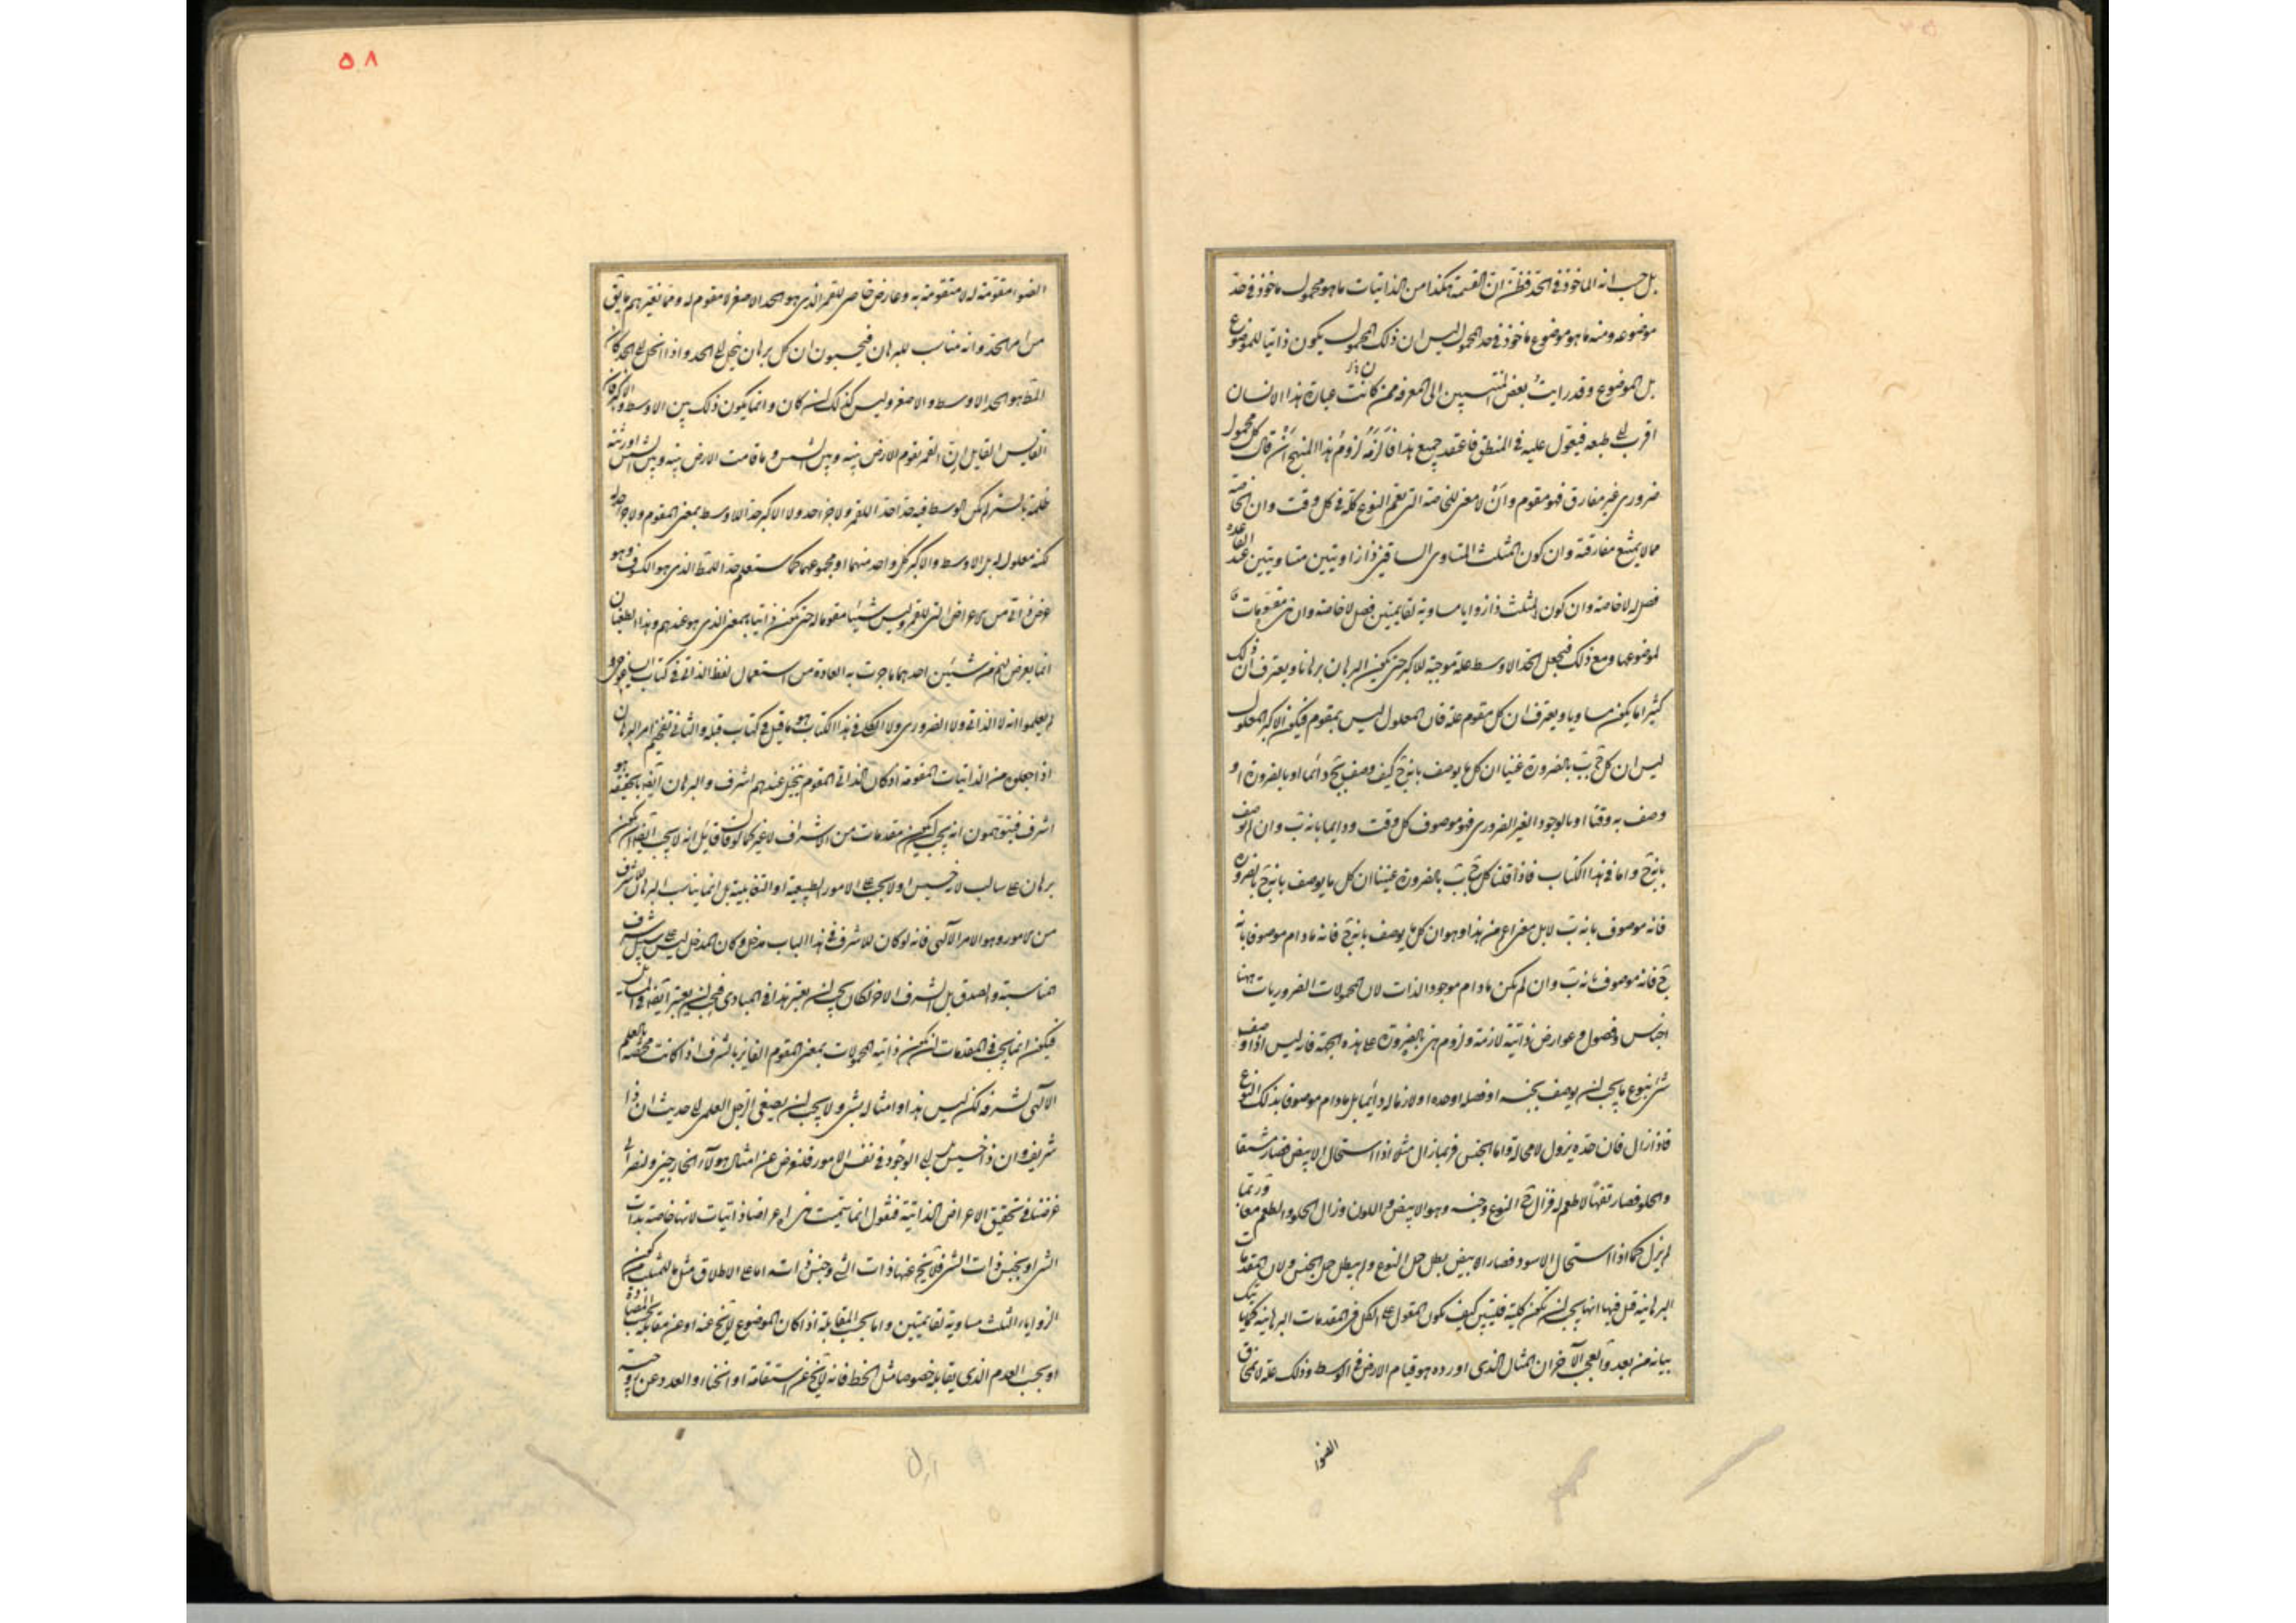 بل حسب انه الماخوذ فى الحد فظن ان القسمة هكذا من الذاتيات ما هو محمول ماخوذ فى حد
موضوعه ومنه ما هو موضوع ماخوذ فى حد المحمول ليس ان ذلك المحمول يكون ذاتيا للموضوع
بل الموضوع وقد رايت بعض المنتسبين الى المعرفه ممن كانت عبارة هذا الانسان
اقرب الى طبعه فيعول عليه فى المنطق فاعتقد جميع هذا فالزمه لزوم هذا المنهج ان قال كل محمول
ضرورى غير مفارق فهو مقوم وان لا معنى للخاصة التى تعم النوع كله فى كل وقت وان الخاصة
مما لا يمتنع مفارقته وان كون المثلث المتساوى الساقين ذا زاويتين متساويتين عند القاعدة
فصل له لا خاصة وان كون المثلث ذا زوايا مساوية لقايمتين فصل لا خاصة وان هى مقومات
لموضوعها ومع ذلك فيجعل الحد الاوسط علة موجبة للاكبر حتى يكون البرهان برهانا ويعترف ان ذلك
كثيرا ما يكون مساويا ويعترف ان كل مقوم علة فان المعلول ليس بمقوم فيكون الاكبر المعلول
ليس ان كل ج ب بالضرورة عنينا ان كل ما يوصف بانه ج كيف وصف بج دائما او بالضرورة او
وصف به وقتا او بالوجود الغير الضرورى فهو موصوف كل وقت ودايما بانه ب وان لم يوصف
بانه ج واما فى هذا الكتاب فاذا قلنا كل ج ب بالضرورة عنينا ان كل ما يوصف بانه ج بالضرورة
فانه موصوف بانه ب لا بل معنى اعم من هذا وهو ان كل ما يوصف بانه ج فانه ما دام موصوفا بانه
ج فانه موصوف بانه ب وان لم يكن ما دام موجود الذات لان المحمولات الضروريات ههنا
اجناس وفصول وعوارض ذاتية لازمة ولزوم هى بالضرورة على هذه الجهة فانه ليس اذا وصف
شئ بنوع ما يجب ان يوصف بجنسه او فصله او حده او لازما له دائما بل ما دام موصوفا بذلك النوع
فاذا زال فان حده يزول لا محالة واما الجنس فربما زال مثلا اذا استحال الابيض فصار مشفا
والحلو فصار تفها لا طعم له فزال ج النوع وجنسه وهو الابيض واللون وزال الحلو والطعم معا وربما
لم يزل كما اذا استحال الاسود فصار ابيض بطل حمل النوع ولم يبطل حمل الجنس ولان المقدمات
البرهانية قيل فيها انها يجب ان تكون كلية فليتبين كيف يكون المقول على الكل فى المقدمات البرهانية
بيانه من بعد والعجب الآخر ان المثال الذى اورده هو قيام الارض فى الوسط وذلك علة لانمحاق
الضوا
٥٨
الضوا مقومة له لا متقومة به وعارض خاص للقمر الذى هو الحد الاصغر لا مقوم له ومما يغيرهم ما يق
من امر الحد وانه مناسب للبرهان فيحسبون ان كل برهان ينحل الى الحد واذا انحل الى الحد كان
المط هو الحد الاوسط والاصغر وليس كذلك ان كان وانما يكون ذلك بين الاوسط والاكبر فان
القايس القايل ان القمر تقوم الارض بينه وبين الشمس وما قامت الارض بينه وبين الشمس اورثته
ظلمة بالستر لم يكن الوسط فيه حدا حد للقمر ولا جزء حد ولا الاكبر حدا للاوسط بمعنى المقوم ولا جزء حد له
لكنه معلول له بل الاوسط والاكبر كل واحد منهما او مجموعهما كما ستعلم حد للمط الذى هو الكسوف وهو
عرض ذاتى من الاعراض التى للقمر وليس شيئا مقوما له حتى يكون ذاتيا بالمعنى الذى هو عندهم وهذا الطغيان
انما يعرض لهم من شيئين احدهما ما جرت به العادة من استعمال لفظ الذاتى فى كتاب ايساغوجى و
لم يعلموا انه لا الذاتى ولا الضرورى ولا الكلى فى هذا الكتاب هو ما قيل فى كتاب قبله والثانى تفخيم امر البرهان
اذا جعلوه من الذاتيات المقومة اذ كان الذاتى المقوم يتخيل عندهم اشرف والبرهان ايضا بالحقيقة هو
اشرف فيتوهمون انه يجب ان يكون مقدمات من الاشراف لا غير كما لو قال قائل انه لا يجب ايضا ان يكون
برهان على سالب لانه خسيس او لا يجب على الامور الطبيعية او التعاليمية بل انما يناسب البرهان الاشرف
من الامور وهو الامر الالهى فانه لو كان للاشرف فى هذا الباب مدخل وكان المدخل ليس على سبيل شرف
المناسبة والصدق بل الشرف الاخر لكان يجب ان يعتبر هذا فى المبادى فيجب ان يعتبر ايضا فى المسايل
فيكون انما يجب فى المقدمات ان تكون ذاتية المحمولات بمعنى المقوم الفايز بالشرف اذا كانت مخصصة بالعلم
الالهى لشرفه لكن ليس هذا او امثاله بشئ ولا يجب ان يصغى الرجل العلمى الى حديث ان ذا
شريف وان ذا خسيس بل الى الوجود فى نفس الامور فلنعرض عن امثال هؤلاء الخارجين ولنصر الى
غرضنا فى تحقيق الاعراض الذاتية فنقول انما سميت هى اعراضا ذاتيات لانها خاصة بذات
الشئ او بجنس ذات الشئ فلا يخ عنها ذات الشئ وجنس ذاته اما على الاطلاق مثل ما للمثلث من كون
الزوايا الثلث مساوية لقايمتين واما بحسب المقابلة اذا كان الموضوع لا يخ عنه او عن مقابله بحسب المضادة
او بحسب العدم الذى يقابله خصوصا مثل الخط فانه لا يخ عن استقامة او انحناء والعدد عن زوجية